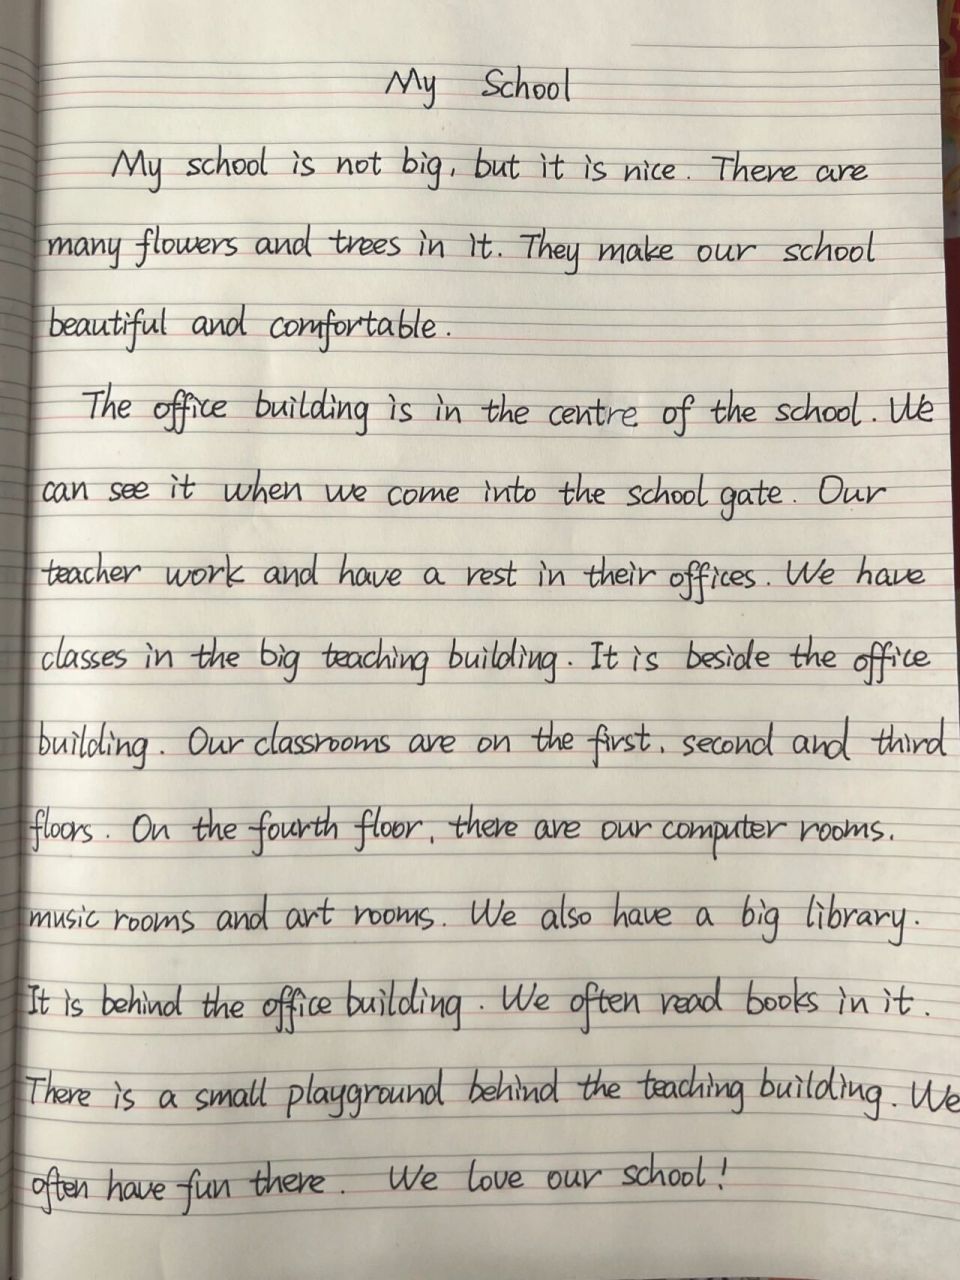 My School
My school is not big, but it is nice. There are
many flowers and trees in it. They make our school
beautiful and comfortable.
The office building is in the centre of the school. We
can see it when we come into the school gate. Our
teacher work and have a rest in their offices. We have
classes in the big teaching building. It is beside the office
building. Our classrooms are on the first, second and third
floors. On the fourth floor, there are our computer rooms.
music rooms and art rooms. We also have a big library.
It is behind the office building. We often read books in it.
There is a small playground behind the teaching building. We
often have fun there. We love our school!